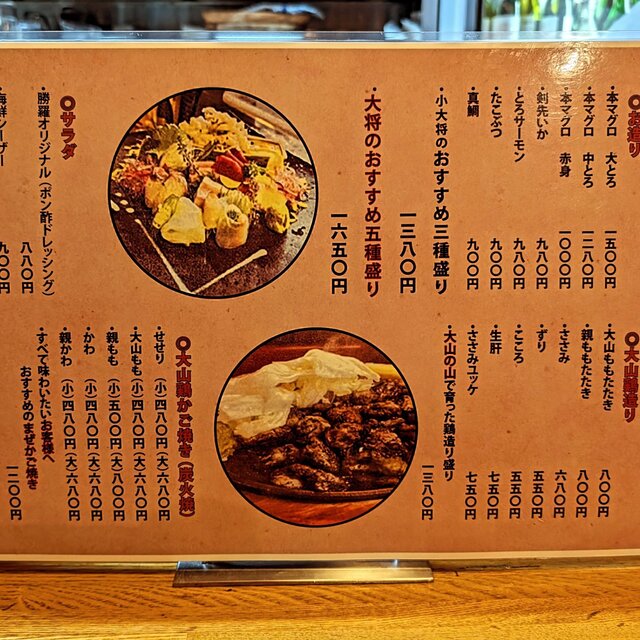 〇お造り
・本マグロ 大とろ 一五〇〇円
・本マグロ 中とろ 一三八〇円
・本マグロ 赤身 一〇〇〇円
・剣先いか 九八〇円
・とろサーモン 九八〇円
・たこぶつ 九〇〇円
・真鯛 九〇〇円
・小大将のおすすめ三種盛り 一三八〇円
・大将のおすすめ五種盛り 一六五〇円
〇サラダ
・勝羅オリジナル(ポン酢ドレッシング) 八八〇円
・海鮮シーザー 九〇〇円
〇大山鶏造り
・大山ももたたき 八〇〇円
・親ももたたき 八〇〇円
・ささみ 六八〇円
・ずり 五五〇円
・こころ 五五〇円
・生肝 七五〇円
・ささみユッケ 七五〇円
・大山の山で育った鶏造り盛り 一三八〇円
〇大山鶏かご焼き(炭火焼)
・せせり (小)四八〇円(大)六八〇円
・大山もも(小)四八〇円(大)六八〇円
・親もも (小)五〇〇円(大)八〇〇円
・かわ (小)四八〇円(大)六八〇円
・親かわ (小)四八〇円(大)六八〇円
・すべて味わいたいお客様へ
おすすめのまぜかご焼き 一二〇〇円